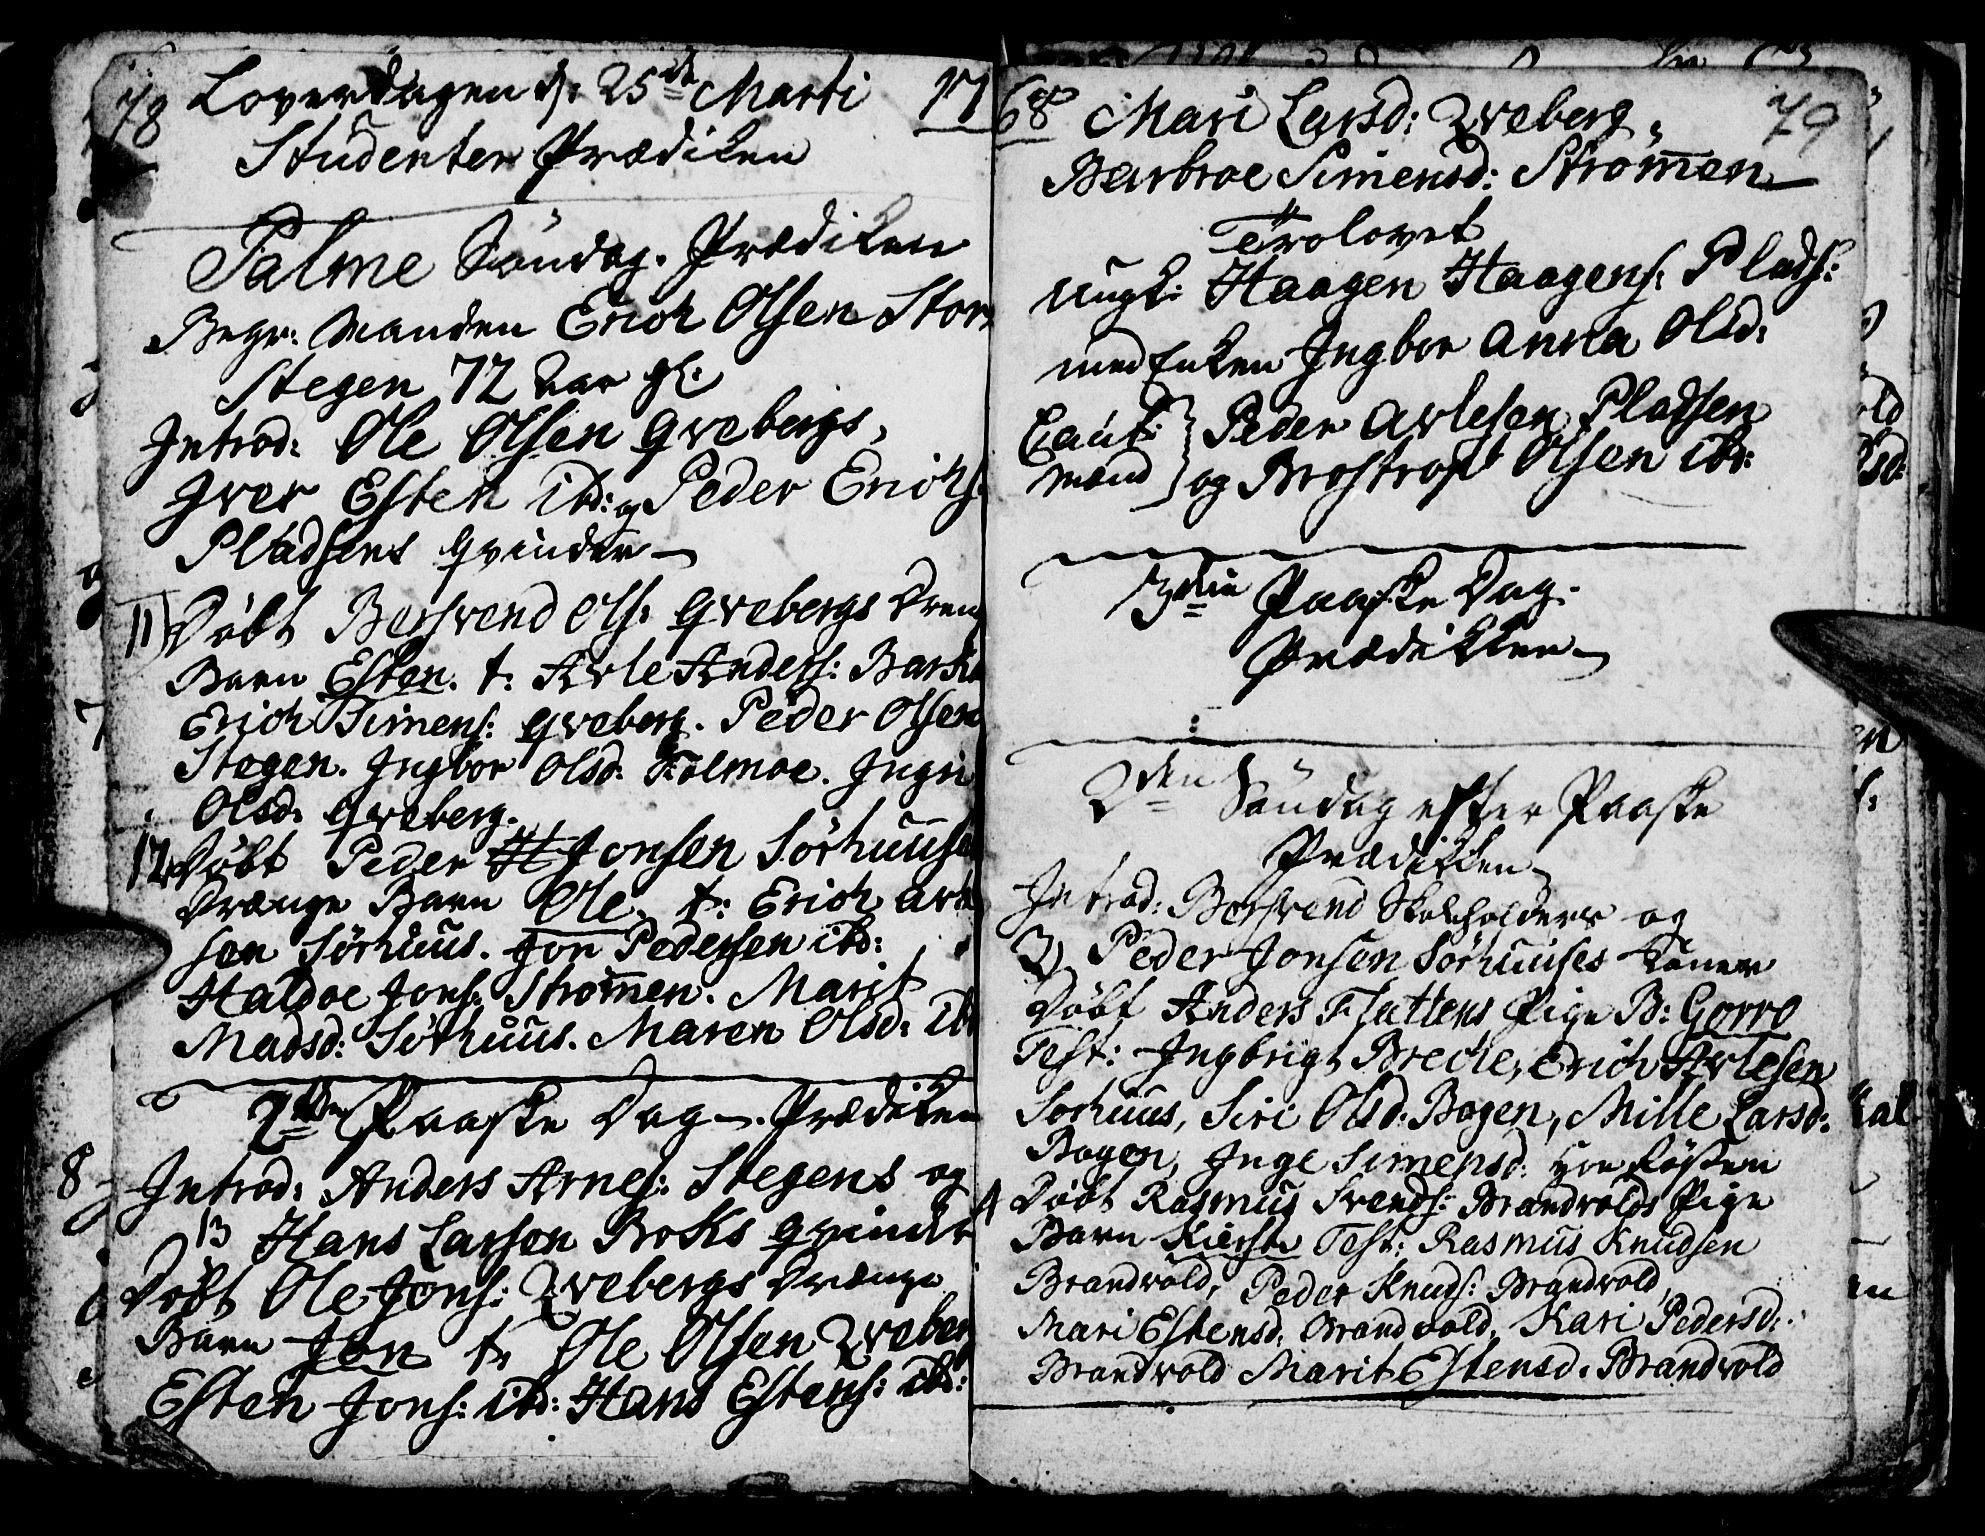 78 Loverdagen d: 25de Marti 17
Studenter Prædiken
Palme Søndag. Prædiken
Begr: Manden Erich Olsen Stor
Stegen 72 aar gl:
Introd: Ole Olsen Qvebergs,
Iver Esten ibd: og Peder Erichs:
Pladsens Qvinder
11) Døbt Bersvend Ols: Qvebergs Dreng
Barn Esten. t: Arle Anders: Bark
Erich Simens: Qveberg. Peder Olsen
Stegen. Ingbor Olsd: Folmoe. Ingri
Olsd: Qveberg.
12 Døbt Peder Jonsen Sørhuuse
Drænge Barn Ole. t: Erich Arle
sen Sørhuus. Jon Pedersen ibd:
Haldoe Jons: Strømen. Marit
Madsd: Sørhuus. Maren Olsd: ib
2den Paaske Dag. Prædiken
Introd: Anders Arnes: Stegens og
13 Hans Larsen Boks Qvinder
Døbt Ole Jons: Qvebergs Drænge
Barn Jon t: Ole Olsen Qveber
Esten Jons: ibd: Hans Estens: ibd:
68 Mari Larsd: Qveberg, 79
Barbroe Simensd: Strømen
Trolovet
ungk: Haagen Haagens: Plads:
med Enken Ingbor Anna Olsd:
Caut: Peder Arlesen Pladsen
mænd og Brostrop Olsen ibd:
3die Paaske Dag.
Prædikken
2den Søndag efter Paaske
Prædikken
Introd: Bersvend Skoleholders og
3) Peder Jonsen Sørhuuses Koner
Døbt Anders Flattens Pige B: Gorro
Test: Ingbrigt Brecke, Erich Arlesen
Sørhuus, Siri Olsd: Bogen, Mille Larsd:
Bogen, Inge Simensd:
4 Døbt Rasmus Svends: Brandvolds Pige
Barn Kierste Test: Rasmus Knudsen
Brandvold, Peder Knuds: Brandvold,
Mari Estensd: Brandvold, Kari Pedersd:
Brandvold Marit Estensd. Brandvold